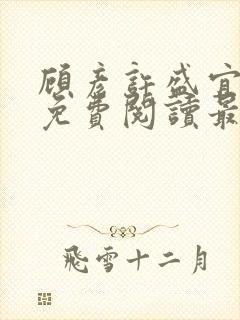 顧彥許盛宜
免費閱讀最
飛雪十二月